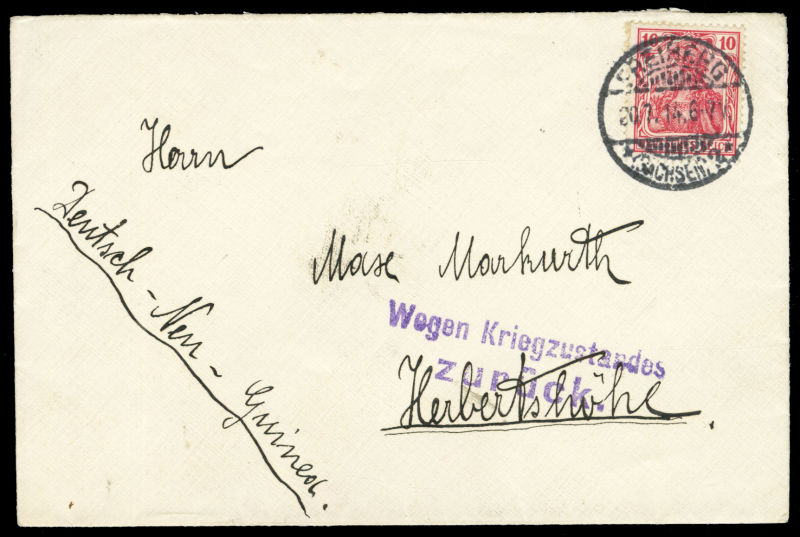 10 10
FREIBERG
20.7.14.6-7
*(SACHSEN)*
Herrn
Max Markurth
Wegen Kriegzustandes
zurück.
Herbertshöhe.
Deutsch-Neu-Guinea.